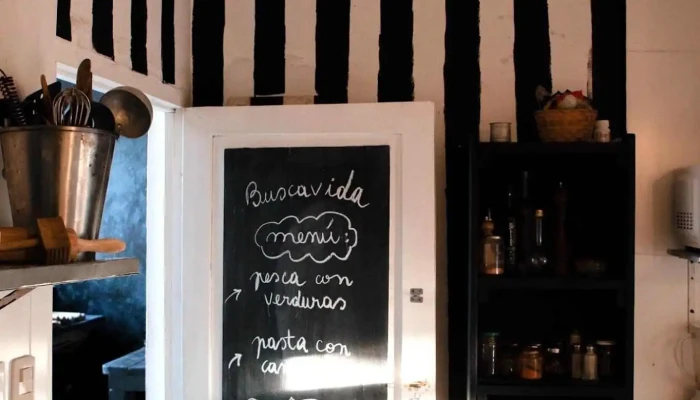 Buscavida
menú:
pesca con
verduras
pasta con